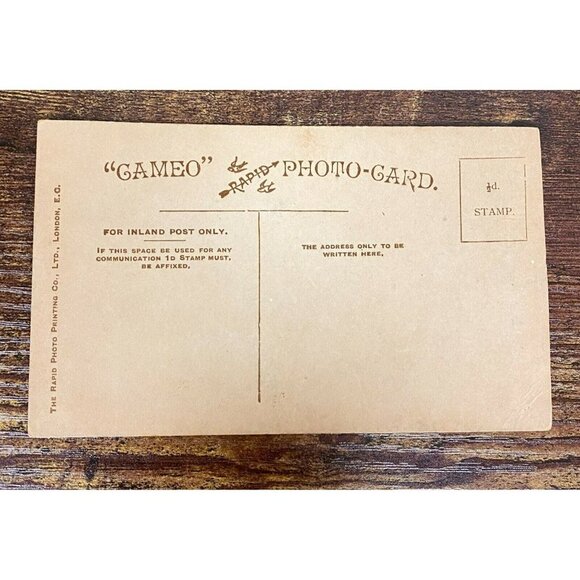 "CAMEO" RAPID PHOTO-CARD.
½d.
STAMP.
FOR INLAND POST ONLY.
IF THIS SPACE BE USED FOR ANY
COMMUNICATION 1D STAMP MUST,
BE AFFIXED,
THE ADDRESS ONLY TO BE
WRITTEN HERE,
THE RAPID PHOTO PRINTING CO., LTD., LONDON, E.C.